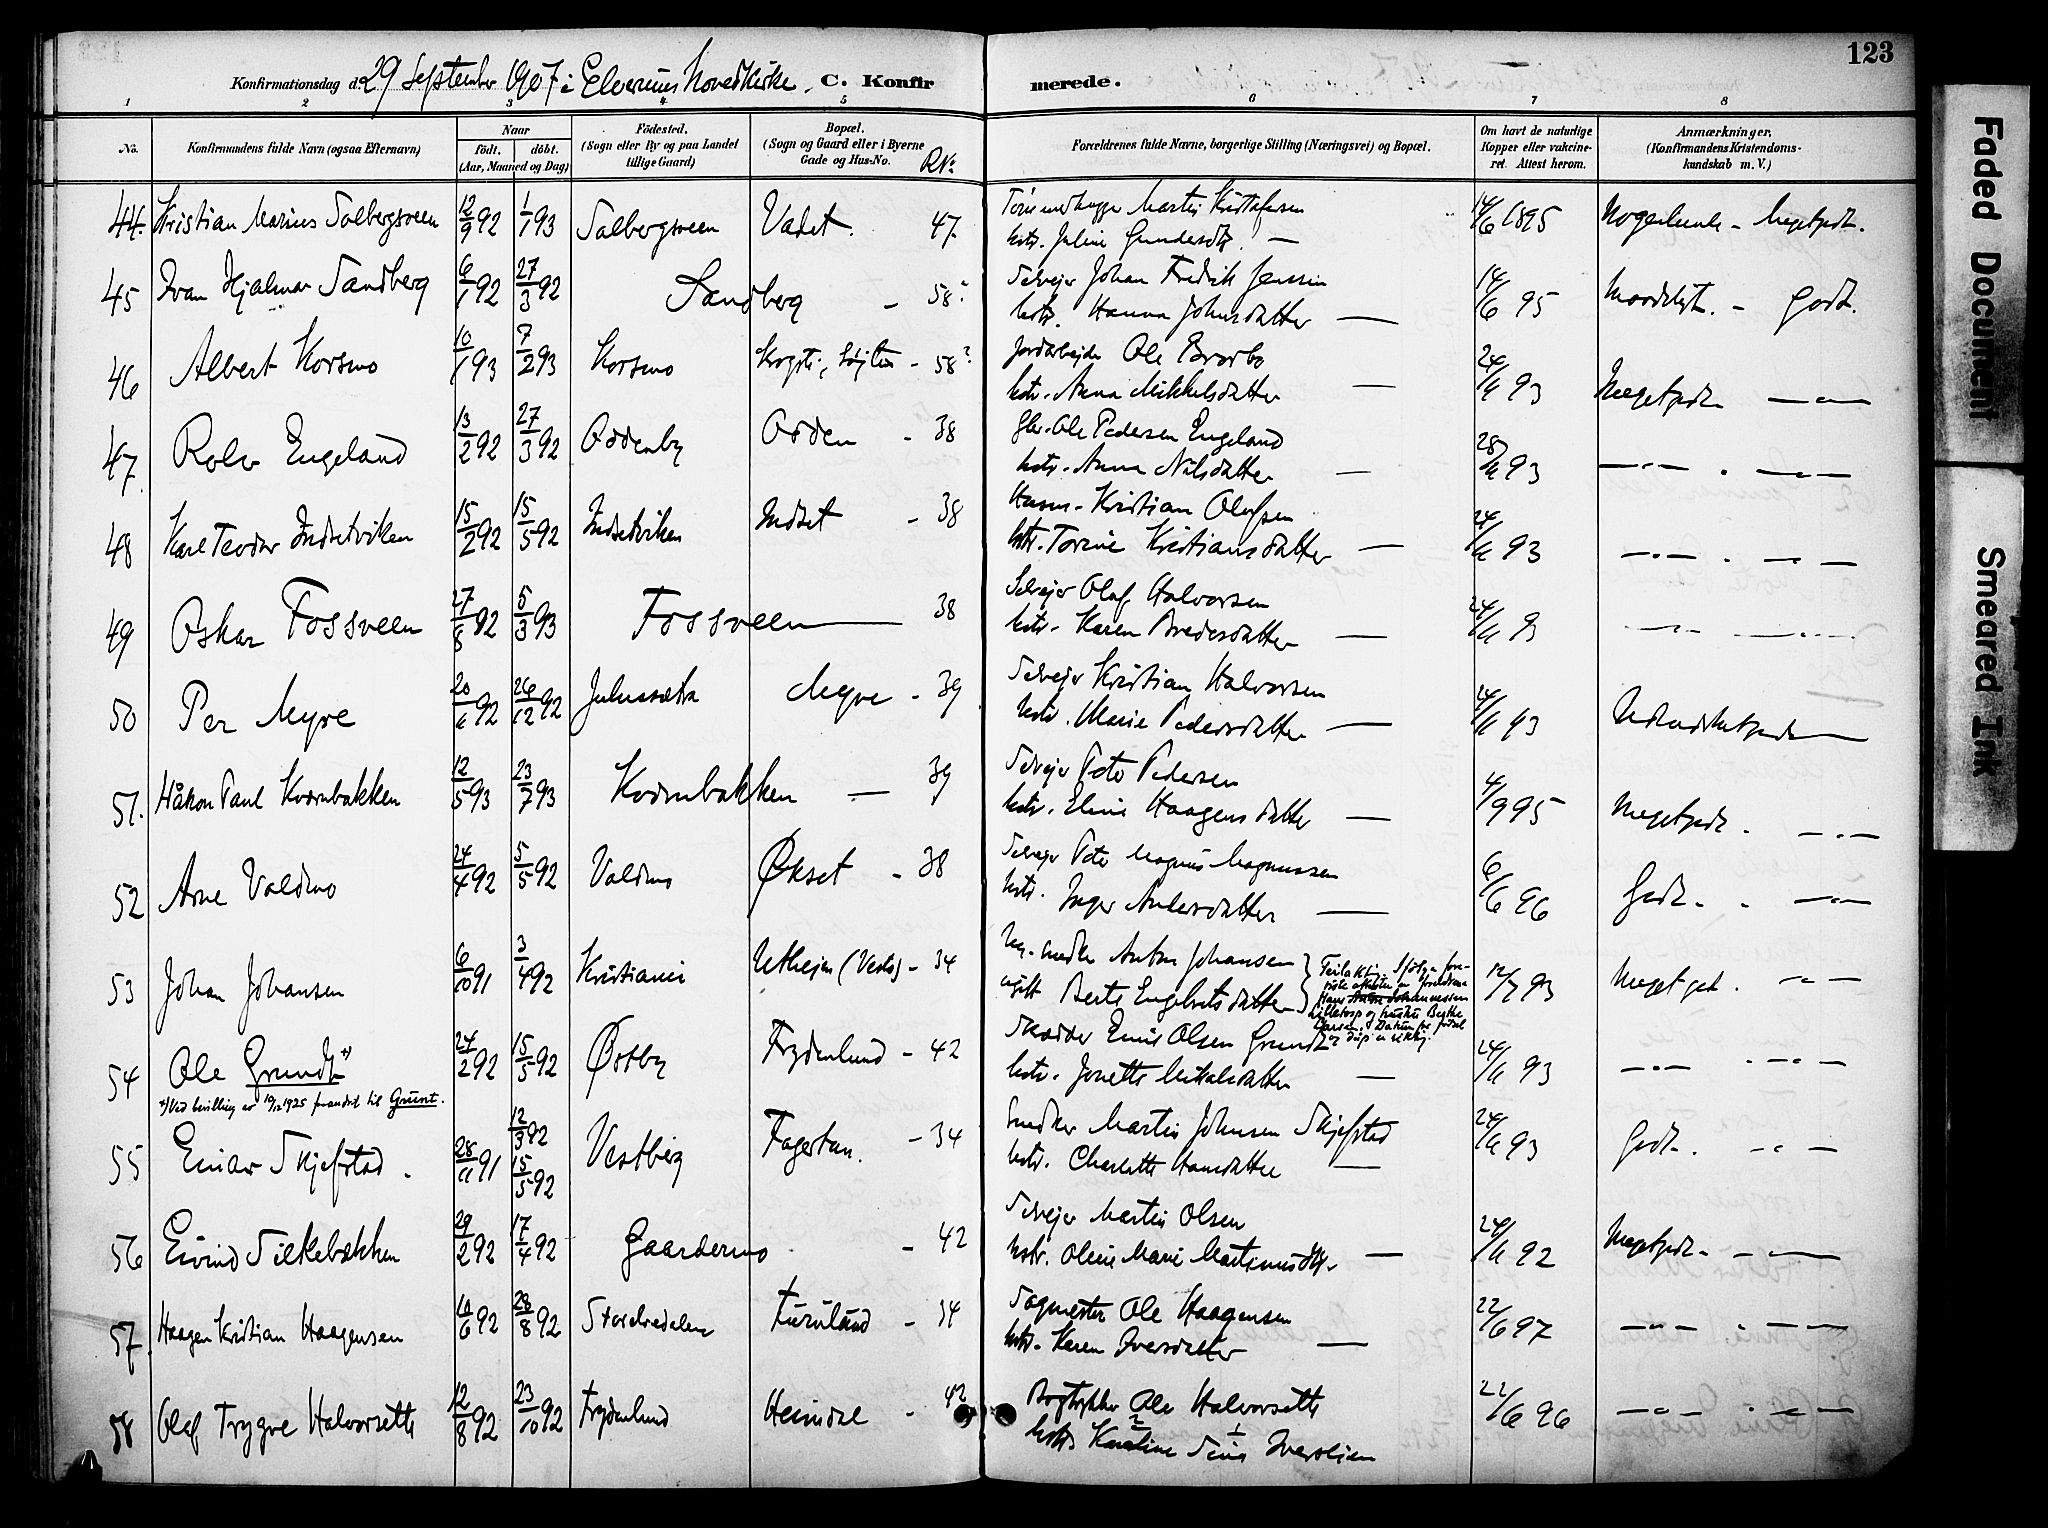 123
Konfirmationsdag d. 29 September 1907 i Elverum Hovedkirke. C. Konfirmerede.
1 2 3 4 5 6 7 8
No. Konfirmandens fulde Navn (ogsaa Efternavn) Naar født. døbt. (Aar, Maaned og Dag) Fødested. (Sogn eller By og paa Landet tillige Gaard) Bopæl. (Sogn og Gaard eller i Byerne Gade og Hus-No. RN: Forældrenes fulde Navne, borgerlige Stilling (Næringsvei) og Bopæl. Om havt de naturlige Kopper eller vakcineret. Attest herom. Anmærkninger. (Konfirmandens Kristendomskundskab m. V.)
44. Kristian Marius Solbergsveen 12/9 92 1/1 93 Solbergsveen Vadet. 47. Martin Kristofersen
kstr. Juline Gundersdtr. — 14/6 1895 Nogenlunde - Megetgodt.
45 Ivan Hjalmar Sandberg 6/1 92 27/3 92 Sandberg - 58 Selveier Johan Fredrik Jenssen
kstr. Hanna Johnsdatter — 14/6 95 - Godt.
46 Albert Korsmo 10/1 93 7/2 93 Korsmo - 58 Jordarbeider Ole
kstr. Anna Mikkelsdatter — 24/11 93 Megetgodt
47. Rolv Engeland 13/2 92 27/3 92 Oddenby Odden - 38 Gbr. Ole Pedersen Engeland
kstr. Anna Nilsdatter — 28/11 93
48 Karl Teodor Indsetviken 15/2 92 15/5 92 Indsetviken Indset - 38 Husm. Kristian Olufsen
kstr. Torine Kristiansdatter — 24/11 93
49 Oskar Fossveen 27/8 92 5/3 93 Fossveen — 38 Selveier Oluf Halvorsen
kstr. Karen Bredesdatter — 24/11 93
50 Per Myre 20/11 92 26/12 92 Julussæta Myre - 39 Selveier Kristian Halvorsen
kstr. Marie Pedersdatter — 24/11 93
51. Håkon Paul Kværnbakken 12/5 93 23/7 93 Kværnbakken — 39 Selveier Peter Pedersen
kstr. Eline Haagensdatter — 4/9 95 Megetgodt.
52 Arne Valdmo 24/4 92 5/5 92 Valdmo Økset - 38 Selveier Peter Magnus Magnussen
kstr. Inger Andersdatter — 6/6 96 Godt.
53 Johan Johansen 6/10 91 3/4 92 Kristiania Utheim - 34 Anton Johansen
ugift Berte Engebretsdatter 12/7 93 Meget godt.
54 Ole Grundt 24/2 92 15/5 92 Østby Frydenlund - 42 Skrædder Emil Olsen Grundt
kstr. Jonette Mikalsdatter — 24/11 93
Ved bevilling av 10/12 1925 forandret til Grunt.
55 Einar Skjefstad. 28/11 91 12/3 92 15/5 92 Vestberg Fagertun. - 34 Snedker Martin Johnsen Skjefstad
kstr. Charlotte Hansdatter — 24/11 93 Godt.
56 Eivind Silkebækken 29/2 92 17/4 92 Gaardermo - 42 Selveier Martin Olsen
kstr. Oline Marie Martinusdtr. — 24/11 92 Megetgodt.
57. Haagen Kristian Haagensen 10/6 92 28/8 92 Furulund - 34 Sagmester Ole Haagensen
kstr. Karen Iversdatter — 22/6 97
58 Olaf Trygve Halvorseth 12/8 92 23/10 92 Frydenlund Heimdal - 42 Bogtrykker Ole Halvorseth
kstr. Karoline Sina Iverslien 22/6 96
Faded Document
Smeared Ink